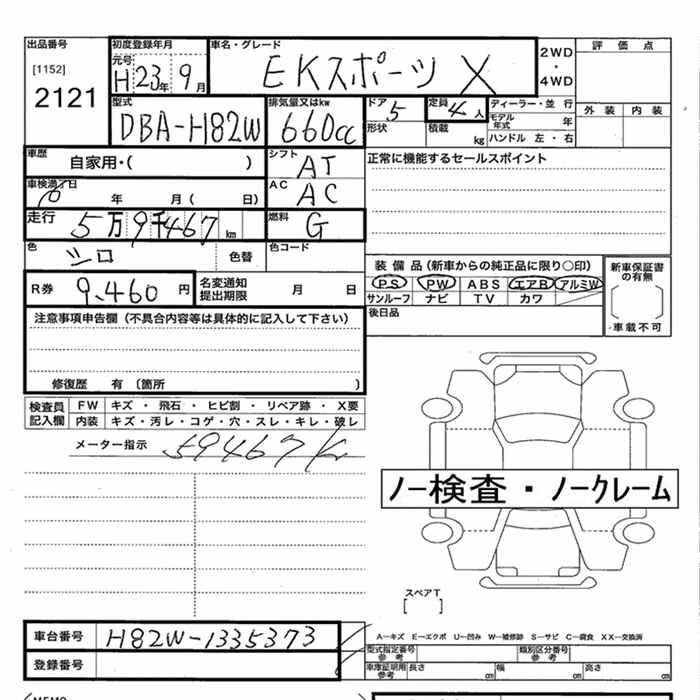 出品番号 初度登録年月 車名・グレード 評価点
[1152] 元号 H 23年 9月 EKスポーツ X 2WD・4WD
2121 型式 排気量又はkw ドア 5 定員 4人 ディーラー・並行 外装 内装
DBA-H82W 660cc 形状 積載 kg モデル年式 年
ハンドル 左・右
車歴 自家用・( ) シフト AT 正常に機能するセールスポイント
車検満了日 年 月( 日) AC AC
走行 5万9千467 km 燃料 G
色 シロ 色替 色コード 装備品(新車からの純正品に限り○印) 新車保証書の有無
R券 9,460円 名変通知提出期限 月 日 PS PW ABS エアB アルミW
サンルーフ ナビ TV カワ
・車載不可
注意事項申告欄(不具合内容等は具体的に記入して下さい) 後日品
修復歴 有〔箇所 〕
検査員記入欄 FW キズ・飛石・ヒビ割・リペア跡・X要
内装 キズ・汚レ・コゲ・穴・スレ・キレ・破レ
メーター指示 59467K
ノー検査・ノークレーム
スペアT
[ ]
車台番号 H82W-1335373 A―キズ E―エクボ U―凹み W―補修跡 S―サビ C―腐食 XX―交換済
型式指定番号 参考 類別区分番号 参考
登録番号 車庫証明用 参考 長さ cm 幅 cm 高さ cm
MEMO